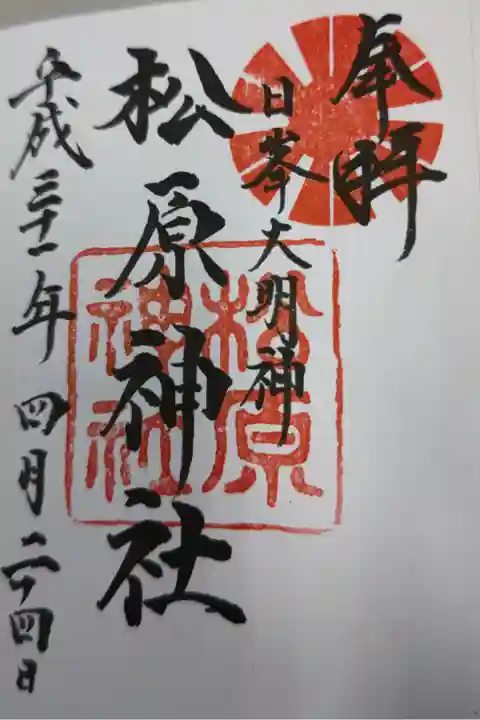 奉拝
日峯大明神
松原神社
松原神社
平成三十一年四月二十四日